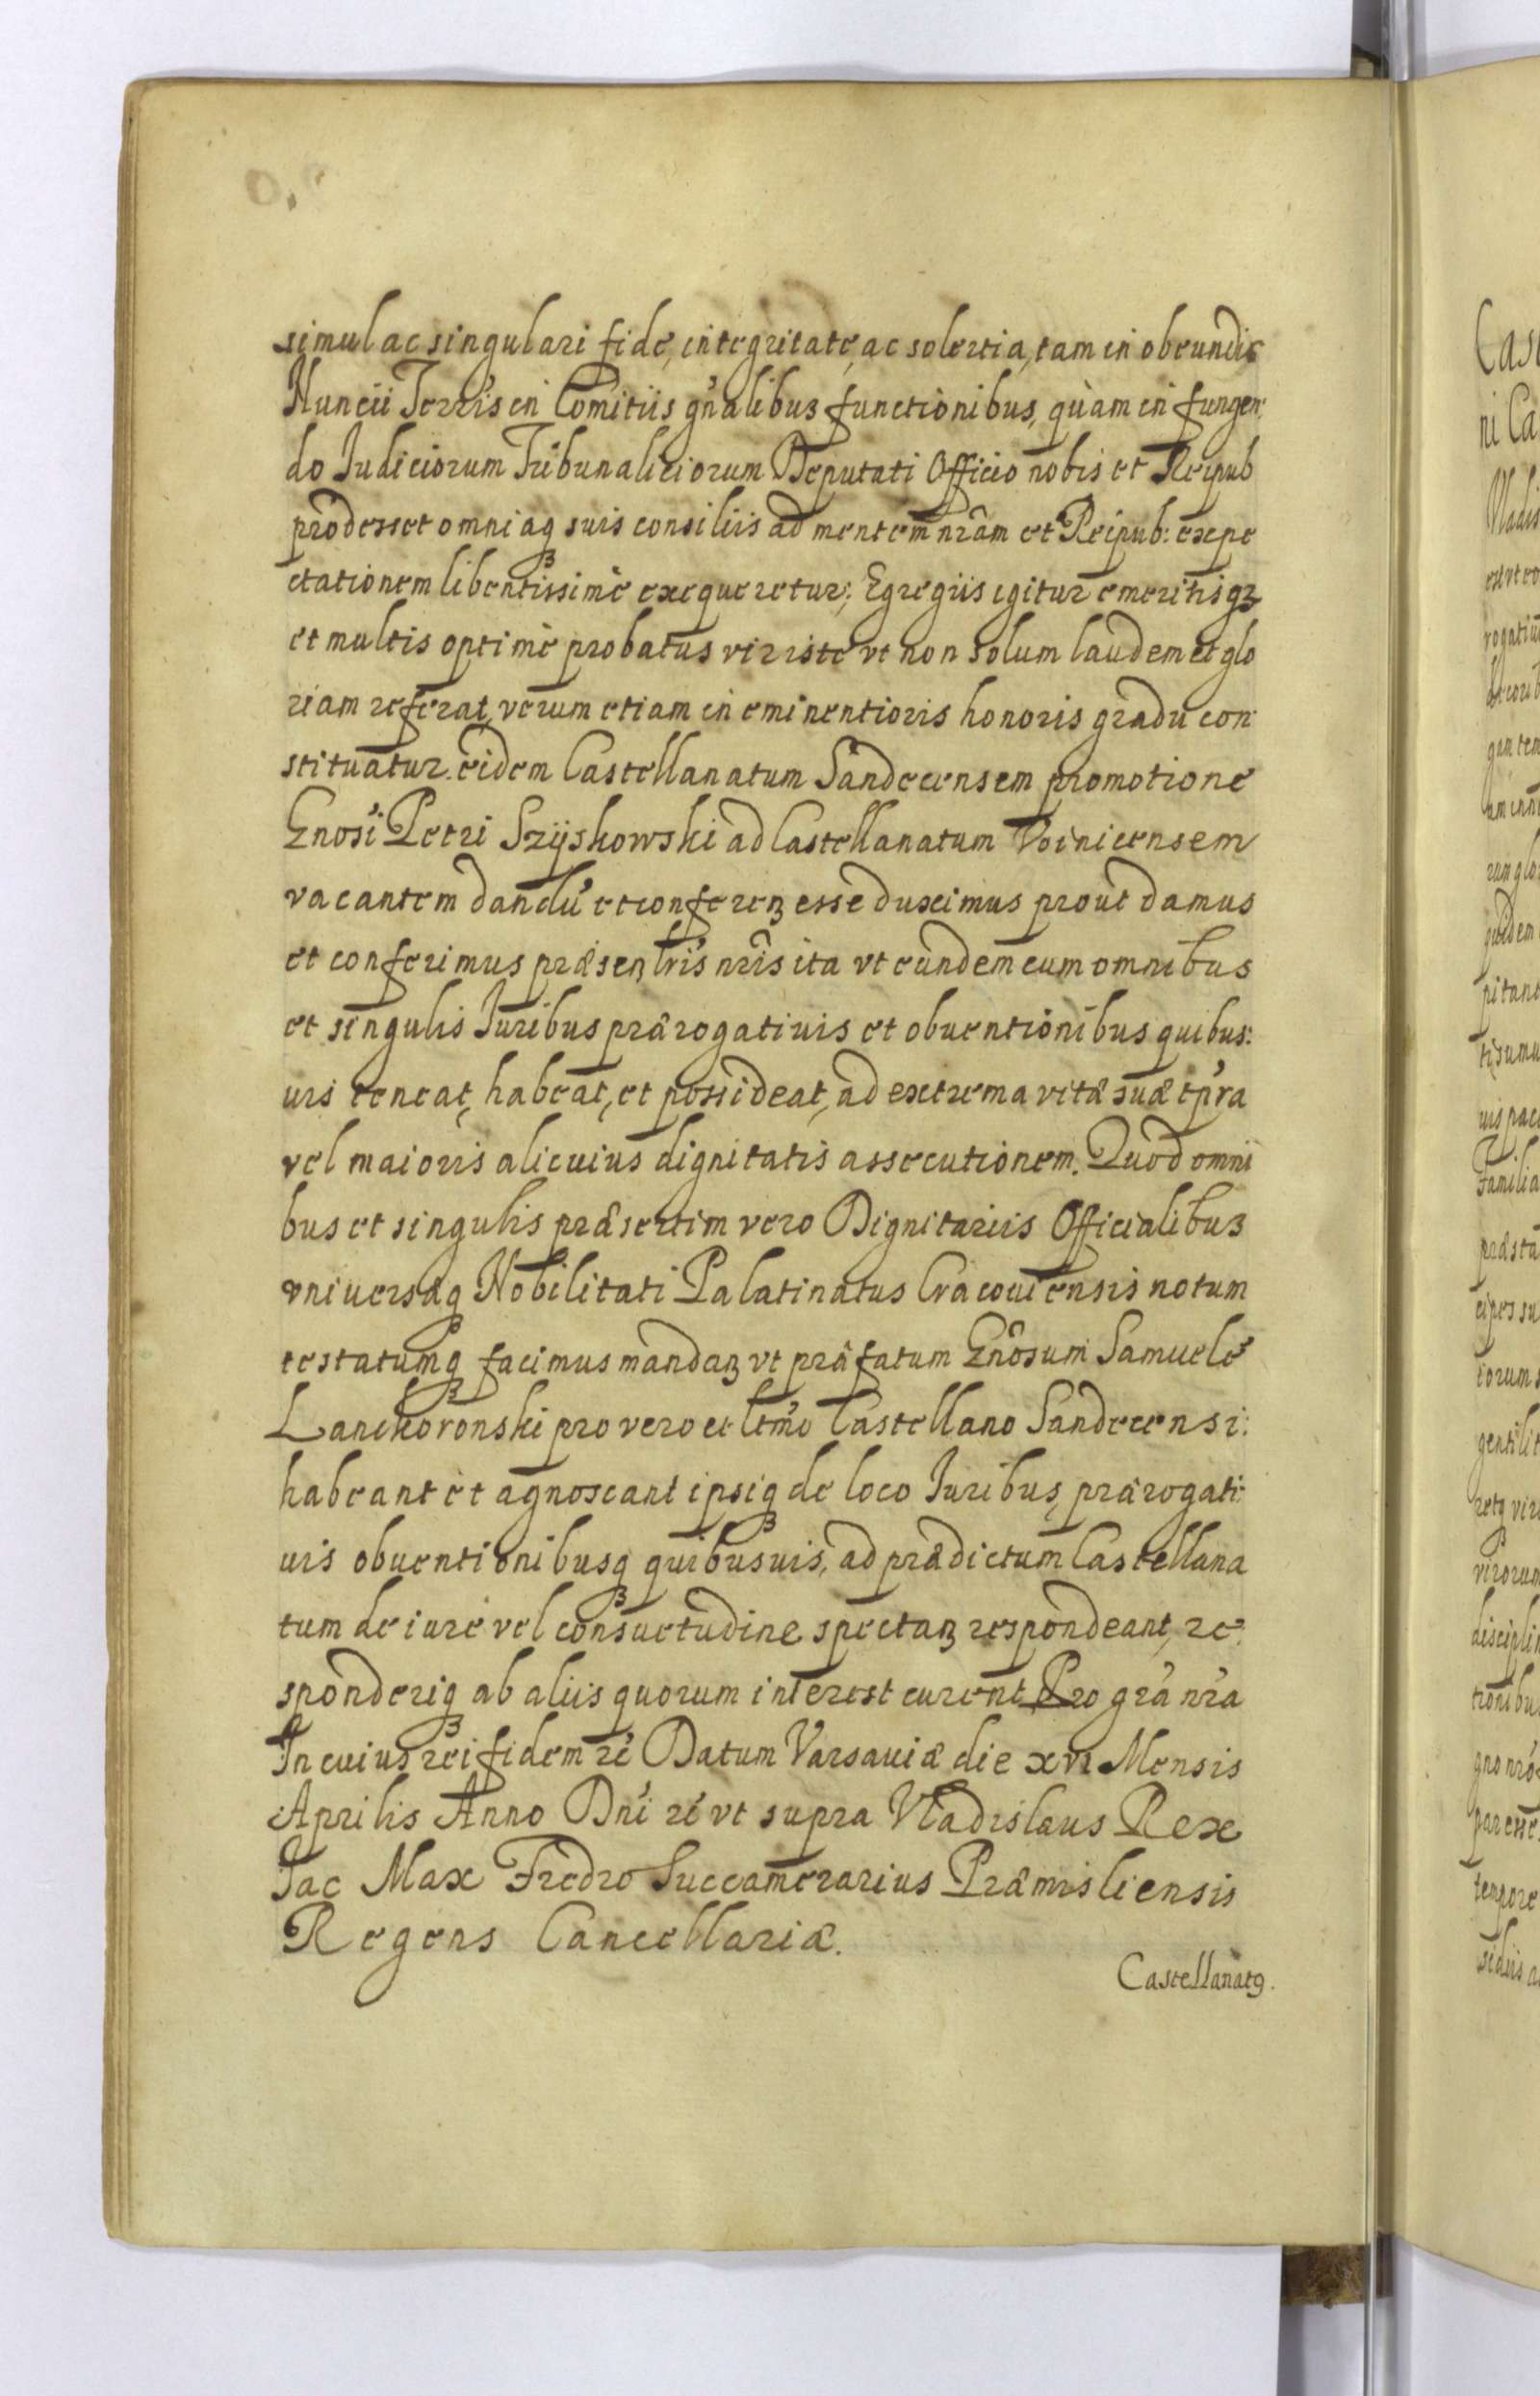 simul ac singulari fide, integritate, ac solertia, tam in obeundis
Nuncii Terris in Comitiis gn̄alibus functionibus, quàm in fungen:
do Iudiciorum Tribunalitiorum Deputati Officio nobis et Reipub
prodesset omniaq₃ suis consiliis ad mentem nr̄am et Reipub: expe
ctationem libentissimè exequeretur; Egregiis igitur emeritisq₃
et multis optimè probatus vir iste vt non solum laudem et glo
riam referat, verum etiam in eminentioris honoris gradu con:
stituatur. eidem Castellanatum Sandecensem promotione
Gnosi Petri Szyszkowski ad Castellanatum Voinicensem
vacantem dandū et conferen₃ esse duximus prout damus
et conferimus præsen₃ lr̄is nr̄is ita vt eundem cum omnibus
et singulis Iuribus prærogatiuis et obuentionibus quibus:
uis teneat, habeat, et possideat, ad extrema vitæ suæ tp̄ra
vel maioris alicuius dignitatis assecutionem. Quod omni
bus et singulis præsertim vero Dignitariis Officialibus
vniuersæq₃ Nobilitati Palatinatus Cracouiensis notum
testatumq₃ facimus mandan₃ vt præfatum Gnōsum Samuele
Lanckoronski pro vero et ltm̄o Castellano Sandecensi:
habeant et agnoscant ipsiq₃ de loco Iuribus, prærogati:
uis obuentionibusq₃ quibusuis, ad prædictum Castellana
tum de iure vel consuetudine spectan₃ respondeant, re:
sponderiq₃ ab aliis quorum interest curent Pro gr̄a nr̄a
In cuius rei fidem rć Datum Varsauiæ die xvi Mensis
Aprilis Anno Dn̄i rć vt supra Vladislaus Rex
Iac Max Fredro Succamerarius Præmisliensis
Regens Cancellariæ.
Castellanat9.